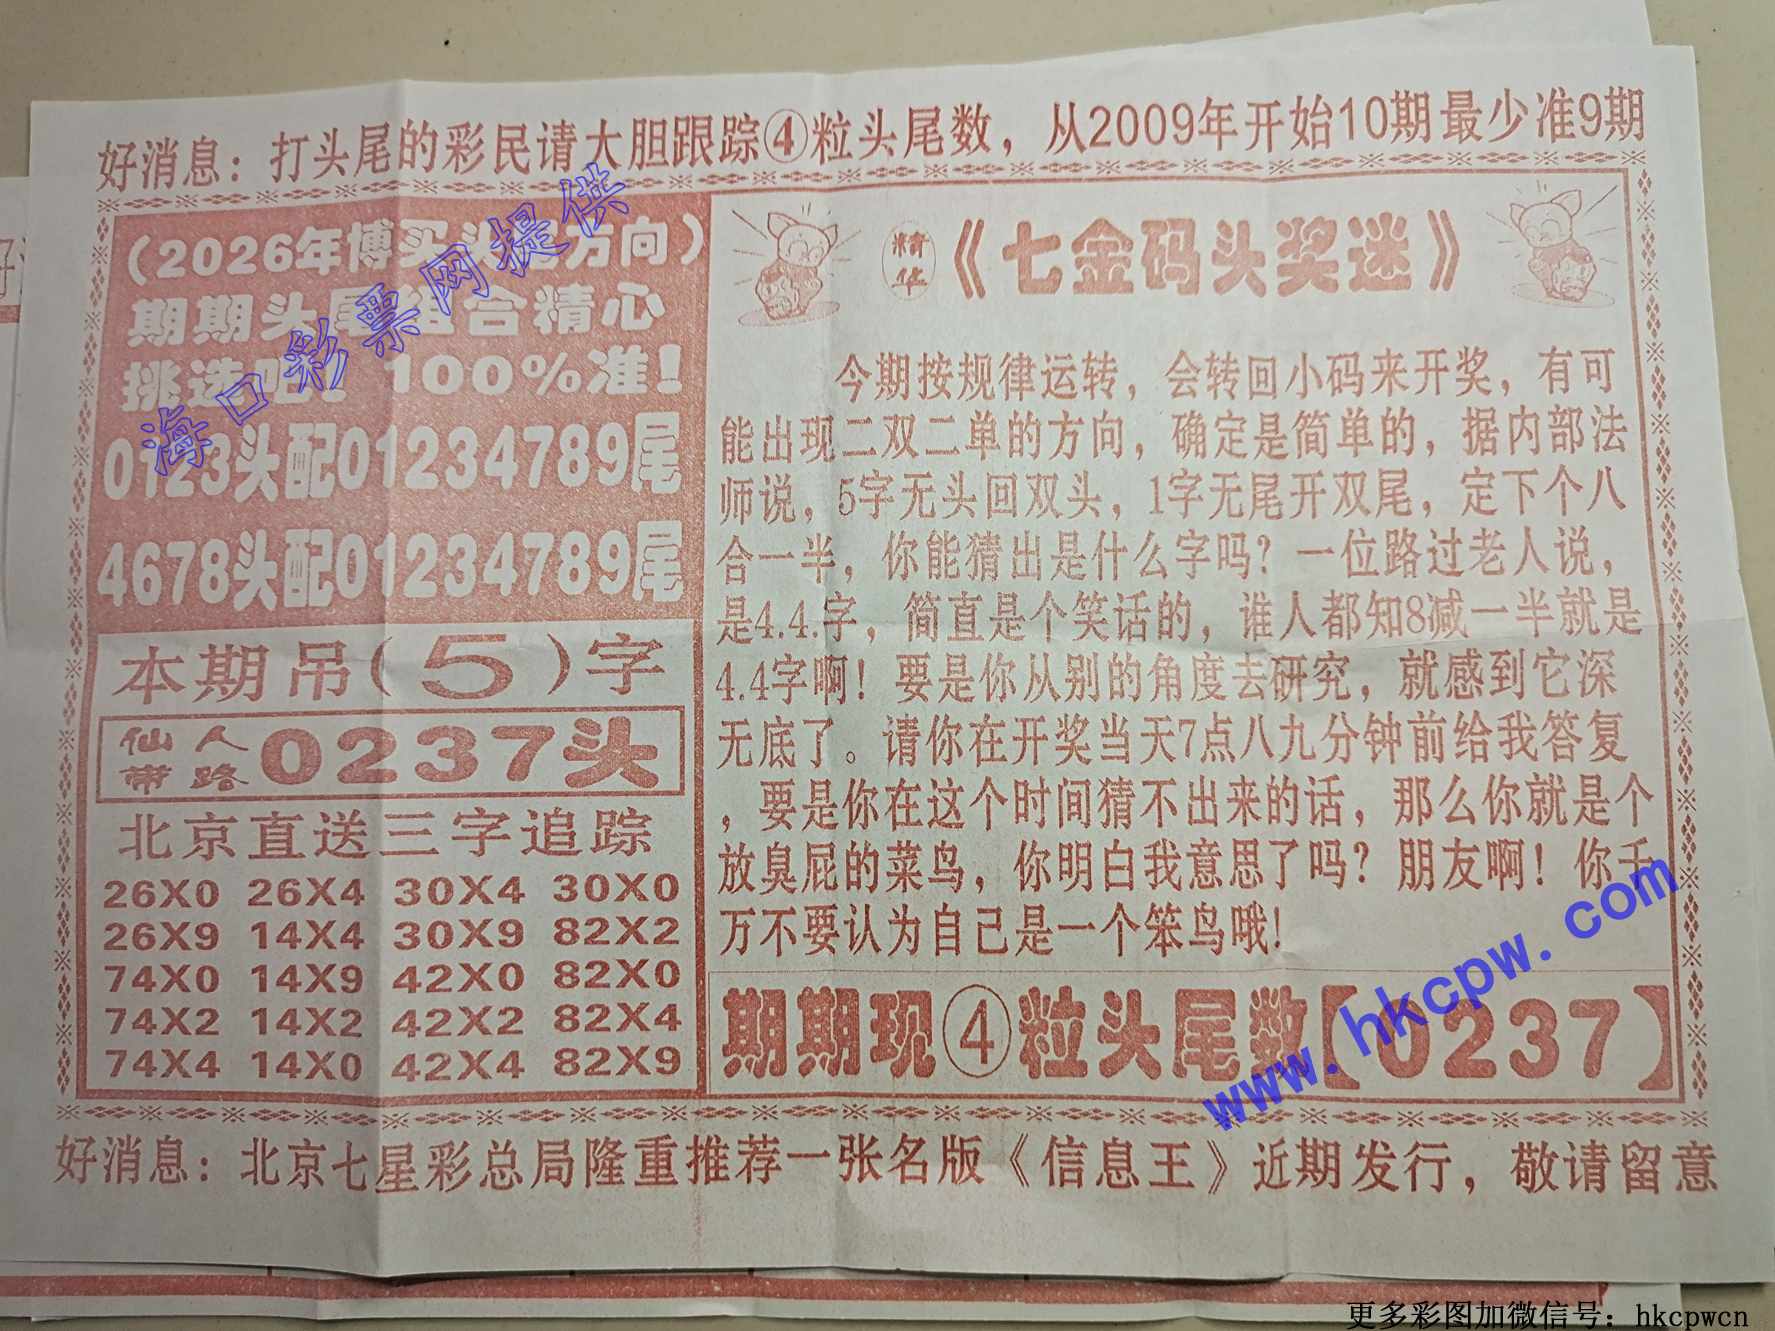 好消息：打头尾的彩民请大胆跟踪④粒头尾数，从2009年开始10期最少准9期
（2026年博买头尾方向）
期期头尾组合精心
挑选吧！100%准！
0123头配01234789尾
4678头配01234789尾
本期吊（5）字
仙人带路0237头
北京直送三字追踪
26X0 26X4 30X4 30X0
26X9 14X4 30X9 82X2
74X0 14X9 42X0 82X0
74X2 14X2 42X2 82X4
74X4 14X0 42X4 82X9
精华《七金码头奖迷》
今期按规律运转，会转回小码来开奖，有可
能出现二双二单的方向，确定是简单的，据内部法
师说，5字无头回双头，1字无尾开双尾，定下个八
合一半，你能猜出是什么字吗？一位路过老人说，
是4.4.字，简直是个笑话的，谁人都知8减一半就是
4.4字啊！要是你从别的角度去研究，就感到它深
无底了。请你在开奖当天7点八九分钟前给我答复
，要是你在这个时间猜不出来的话，那么你就是个
放臭屁的菜鸟，你明白我意思了吗？朋友啊！你千
万不要认为自己是一个笨鸟哦！
期期现④粒头尾数【0237】
好消息：北京七星彩总局隆重推荐一张名版《信息王》近期发行，敬请留意
海口彩票网提供
www.hkcpw.com
更多彩图加微信号：hkcpwcn